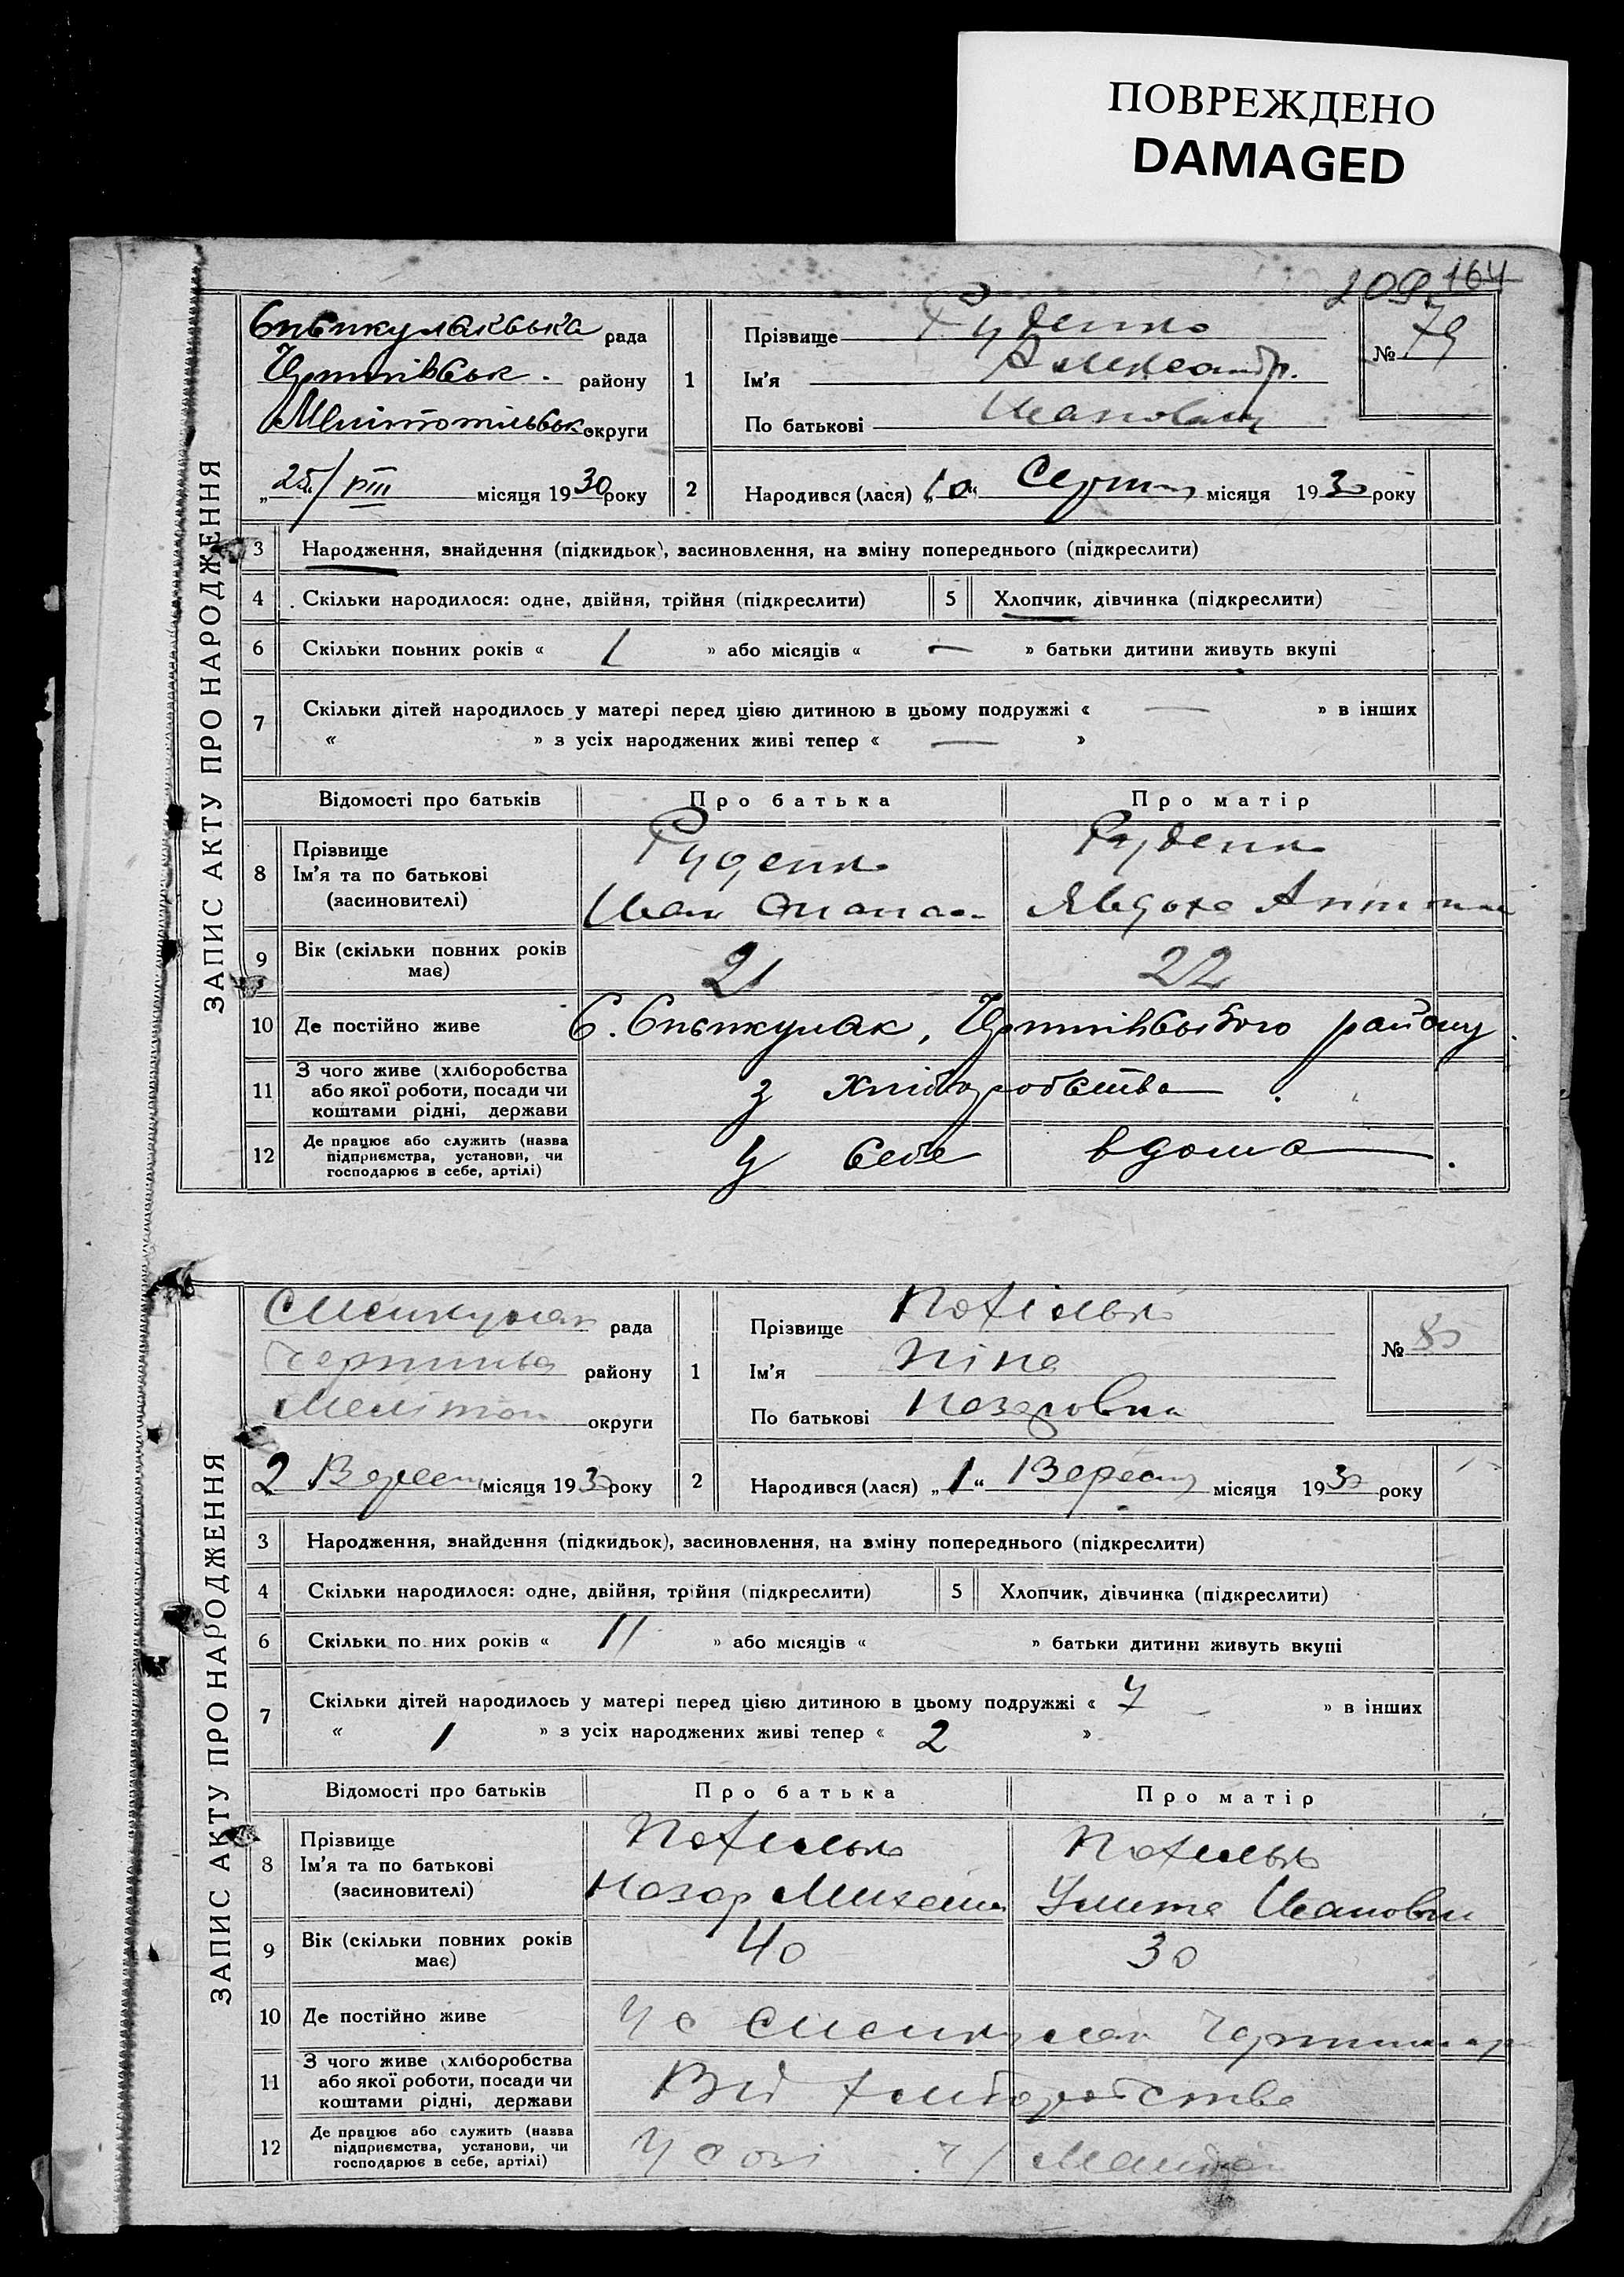 ПОВРЕЖДЕНО
DAMAGED
209 164
ЗАПИС АКТУ ПРО НАРОДЖЕННЯ
рада
району
Мелітопільськ округи
„25“/VIII місяця 1930 року
1
Прізвище Руденко
Ім’я Александр.
По батькові Иванович
№ 79
2
Народився (лася) „10“ Серпня місяця 1930 року
3 Народження, знайдення (підкидьок), засиновлення, на зміну попереднього (підкреслити)
4 Скільки народилося: одне, двійня, трійня (підкреслити) 5 Хлопчик, дівчинка (підкреслити)
6 Скільки повних років « 1 » або місяців « — » батьки дитини живуть вкупі
7 Скільки дітей народилось у матері перед цією дитиною в цьому подружжі « — » в інших
« » з усіх народжених живі тепер « — »
Відомості про батьків Про батька Про матір
8 Прізвище
Ім’я та по батькові
(засиновителі)
Руденко Руденко
Иван Явдоха
9 Вік (скільки повних років має) 21 22
10 Де постійно живе С. району
11 З чого живе (хліборобства
або якої роботи, посади чи
коштами рідні, держави
з хліборобства
12 Де працює або служить (назва
підприємства, установи, чи
господарює в себе, артілі)
у себе вдома
ЗАПИС АКТУ ПРО НАРОДЖЕННЯ
рада
району
Мелітоп округи
2 Вересня місяця 1930 року
1
Прізвище Потілько
Ім’я Ніна
По батькові Назаровна
№ 80
2
Народився (лася) „1“ Вересня місяця 1930 року
3 Народження, знайдення (підкидьок), засиновлення, на зміну попереднього (підкреслити)
4 Скільки народилося: одне, двійня, трійня (підкреслити) 5 Хлопчик, дівчинка (підкреслити)
6 Скільки повних років « 11 » або місяців « » батьки дитини живуть вкупі
7 Скільки дітей народилось у матері перед цією дитиною в цьому подружжі « 7 » в інших
« 1 » з усіх народжених живі тепер « 2 »
Відомості про батьків Про батька Про матір
8 Прізвище
Ім’я та по батькові
(засиновителі)
Назар Улита Ивановн
9 Вік (скільки повних років має) 40 30
10 Де постійно живе У с
11 З чого живе (хліборобства
або якої роботи, посади чи
коштами рідні, держави
Від хліборобства
12 Де працює або служить (назва
підприємства, установи, чи
господарює в себе, артілі)